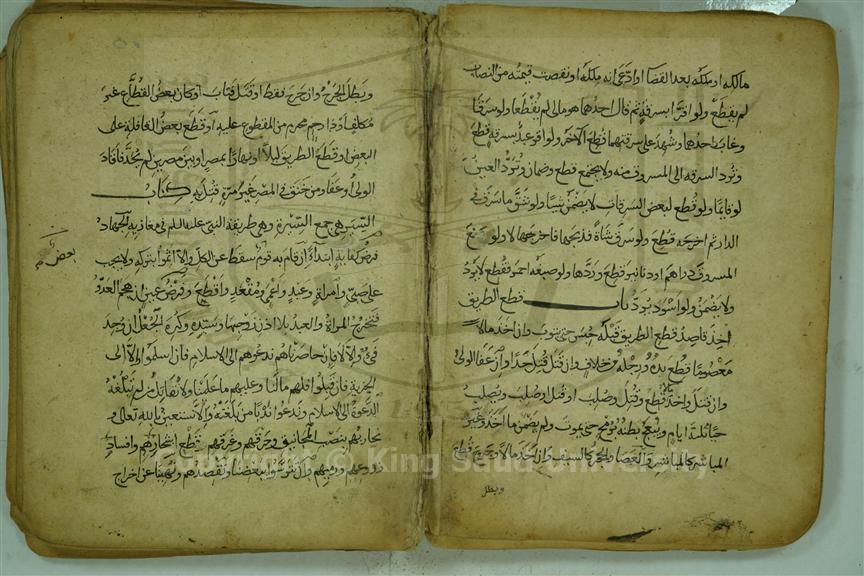 مالكه او ملكه بعد القضا او ادعى انه ملكه او نقصت قيمته من النصاب
لم يقطع ولو اقرا بسرقة ثم قال احدهما هو مالى لم يقطعا ولو سرقا
وغاب احدهما وشهد على سرقتهما قطع الاخر ولو اقر عبد بسرقة قطع
وترد السرقة الى المسروق منه ولا يجتمع قطع وضمان وترد العين
لو قايما ولو قطع لبعض السرقات لا يضمن شيا ولو شق ما سرق فى
الدار ثم اخرجه قطع ولو سرق شاة فذبحها فاخرجها لا ولو صنع
المسروق دراهم او دنانير قطع وردها ولو صبغه احمر فقطع لا يرد
ولا يضمن ولو اسود يرد باب قطع الطريق
اخذ قاصد قطع الطريق قبله حبس حتى يتوب وان اخذ مالا
معصوما قطع يده ورجله من خلاف وان قتل قتل حدا وان عفا الولى
وان قتل واخذ قطع وقتل وصلب او قتل او صلب ويصلب
حيا ثلثة ايام ويبعج بطنه برمح حتى يموت ولم يضمن ما اخذ وغير
المباشر كالمباشر والعصا والحجر كالسيف وان اخذ مالا وجرح قطع
وبطل
وبطل الجرح وان جرح فقط او قتل فتاب او كان بعض القطاع غير
مكلف او ذا رحم محرم من المقطوع عليه او قطع بعض القافلة على
البعض او قطع الطريق ليلا او نهارا بمصر او بين مصرين لم يحد فاقاد
الولى او عفا ومن خنق فى المصر غير مرة قتل به كتاب
السير هى جمع السيرة وهى طريقة النبى عليه السلم فى مغازيه الجهاد
فرض كفاية ابتداء فان قام به قوم سقط عن الكل والا اثموا بتركه ولا يجب
بعض
على صبى وامراة وعبد واعمى ومقعد واقطع وفرض عين ان هجم العدو
فتخرج المراة والعبد بلا اذن زوجها وسيده وكره الجعل ان وجد
فئ والا لا فان حاصرناهم ندعوهم الى الاسلام فان اسلموا والا الى
الجزية فان قبلوا فلهم مالنا وعليهم ما علينا ولا نقاتل من لم تبلغه
الدعوة الى الاسلام وندعوا ندبا من بلغته والا نستعين بالله تعالى و
نحاربهم بنصب المجانيق وحرقهم وغرقهم وقطع اشجارهم وافساد
زروعهم ورميهم وان تترسوا ببعضنا ونقصدهم ونهينا عن اخراج
Copyright © King Saud University